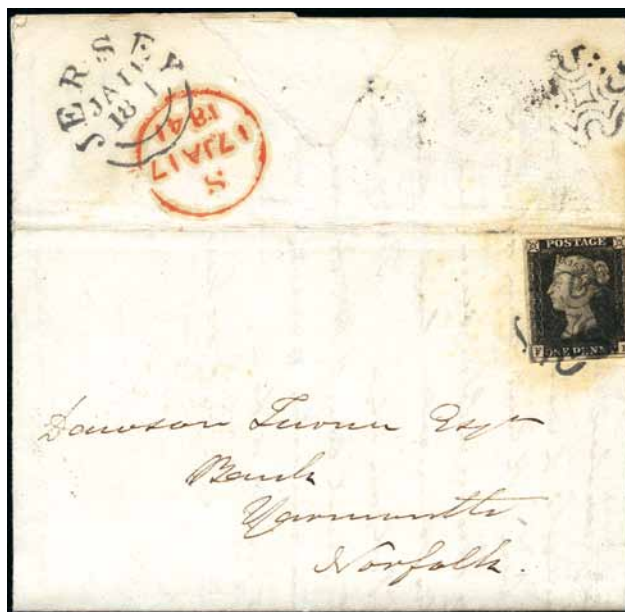 JERSEY
JA 11
1841
S
17 JA 17
1841
POSTAGE
ONE PENNY
F
Dawson Turner Esqr
Bank
Yarmouth
Norfolk.